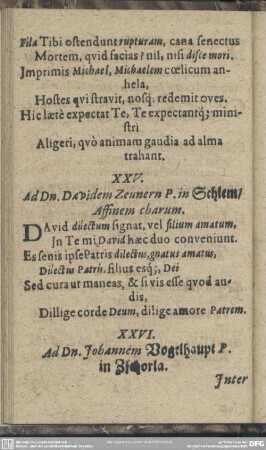 Fila Tibi ostendunt rupturam, cana senectus
Mortem, qvid facias? nil, nisi disce mori.
Imprimis Michael, Michaelem cœlicum an-
hela,
Hostes qvi stravit, nosq; redemit oves.
Hic lætè expectat Te, Te expectantq; mini-
stri
Aligeri, qvò animam gaudia ad alma
trahant.
XXV.
Ad Dn. Davidem Zeunern P. in Schlem/
Affinem charum.
DAvid dilectum signat, vel filium amatum,
In Te mi David hæc duo conveniunt.
Es senis ipse Patris dilectus, gnatus amatus,
Dilectus Patris. filius esq; Dei
Sed cura ut maneas, & si vis esse qvod au-
dis,
Dillige corde Deum, dilige amore Patrem.
XXVI.
Ad Dn. Johannem Vogelhaupt P.
in Zschorla.
Inter